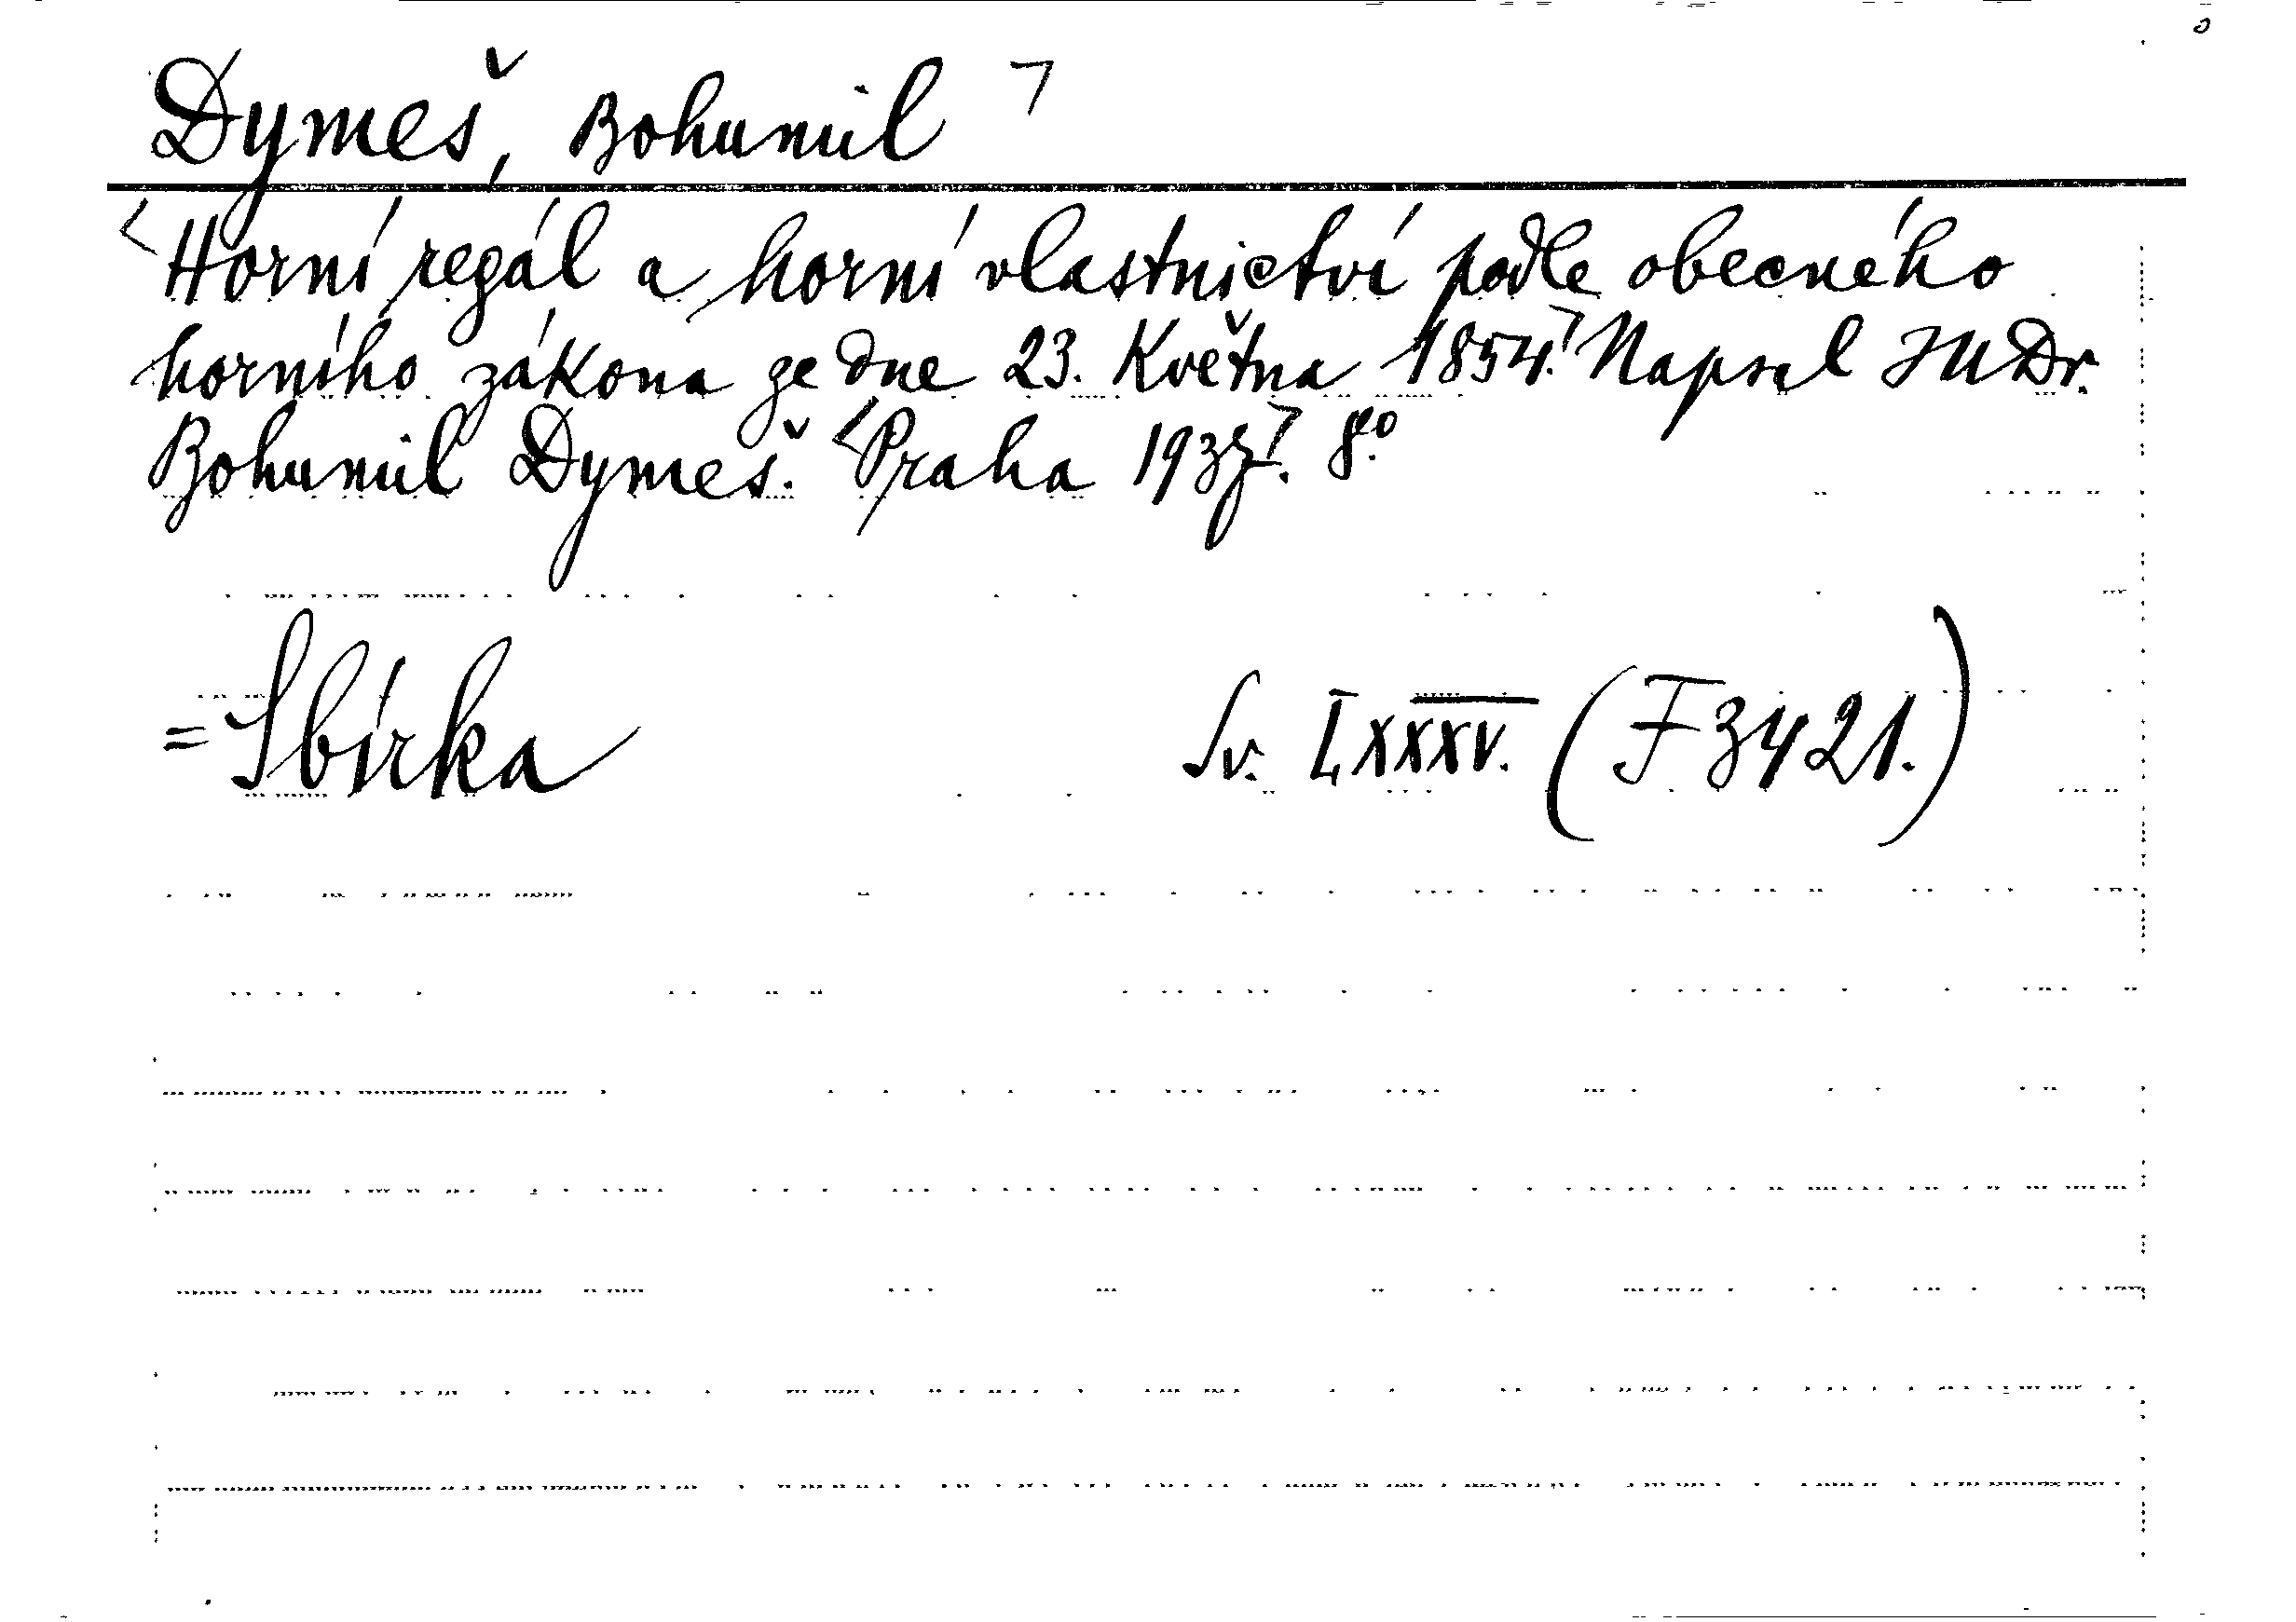 Dymeš, Bohumil
Horní regál a horní vlastnictví podle obecného
horního zákona ze dne 23. Května 1854. Napsal JUDr.
Bohumil Dymeš. Praha 1937. 8°
= Sbírka Sv. LXXXV. (F 3421.)